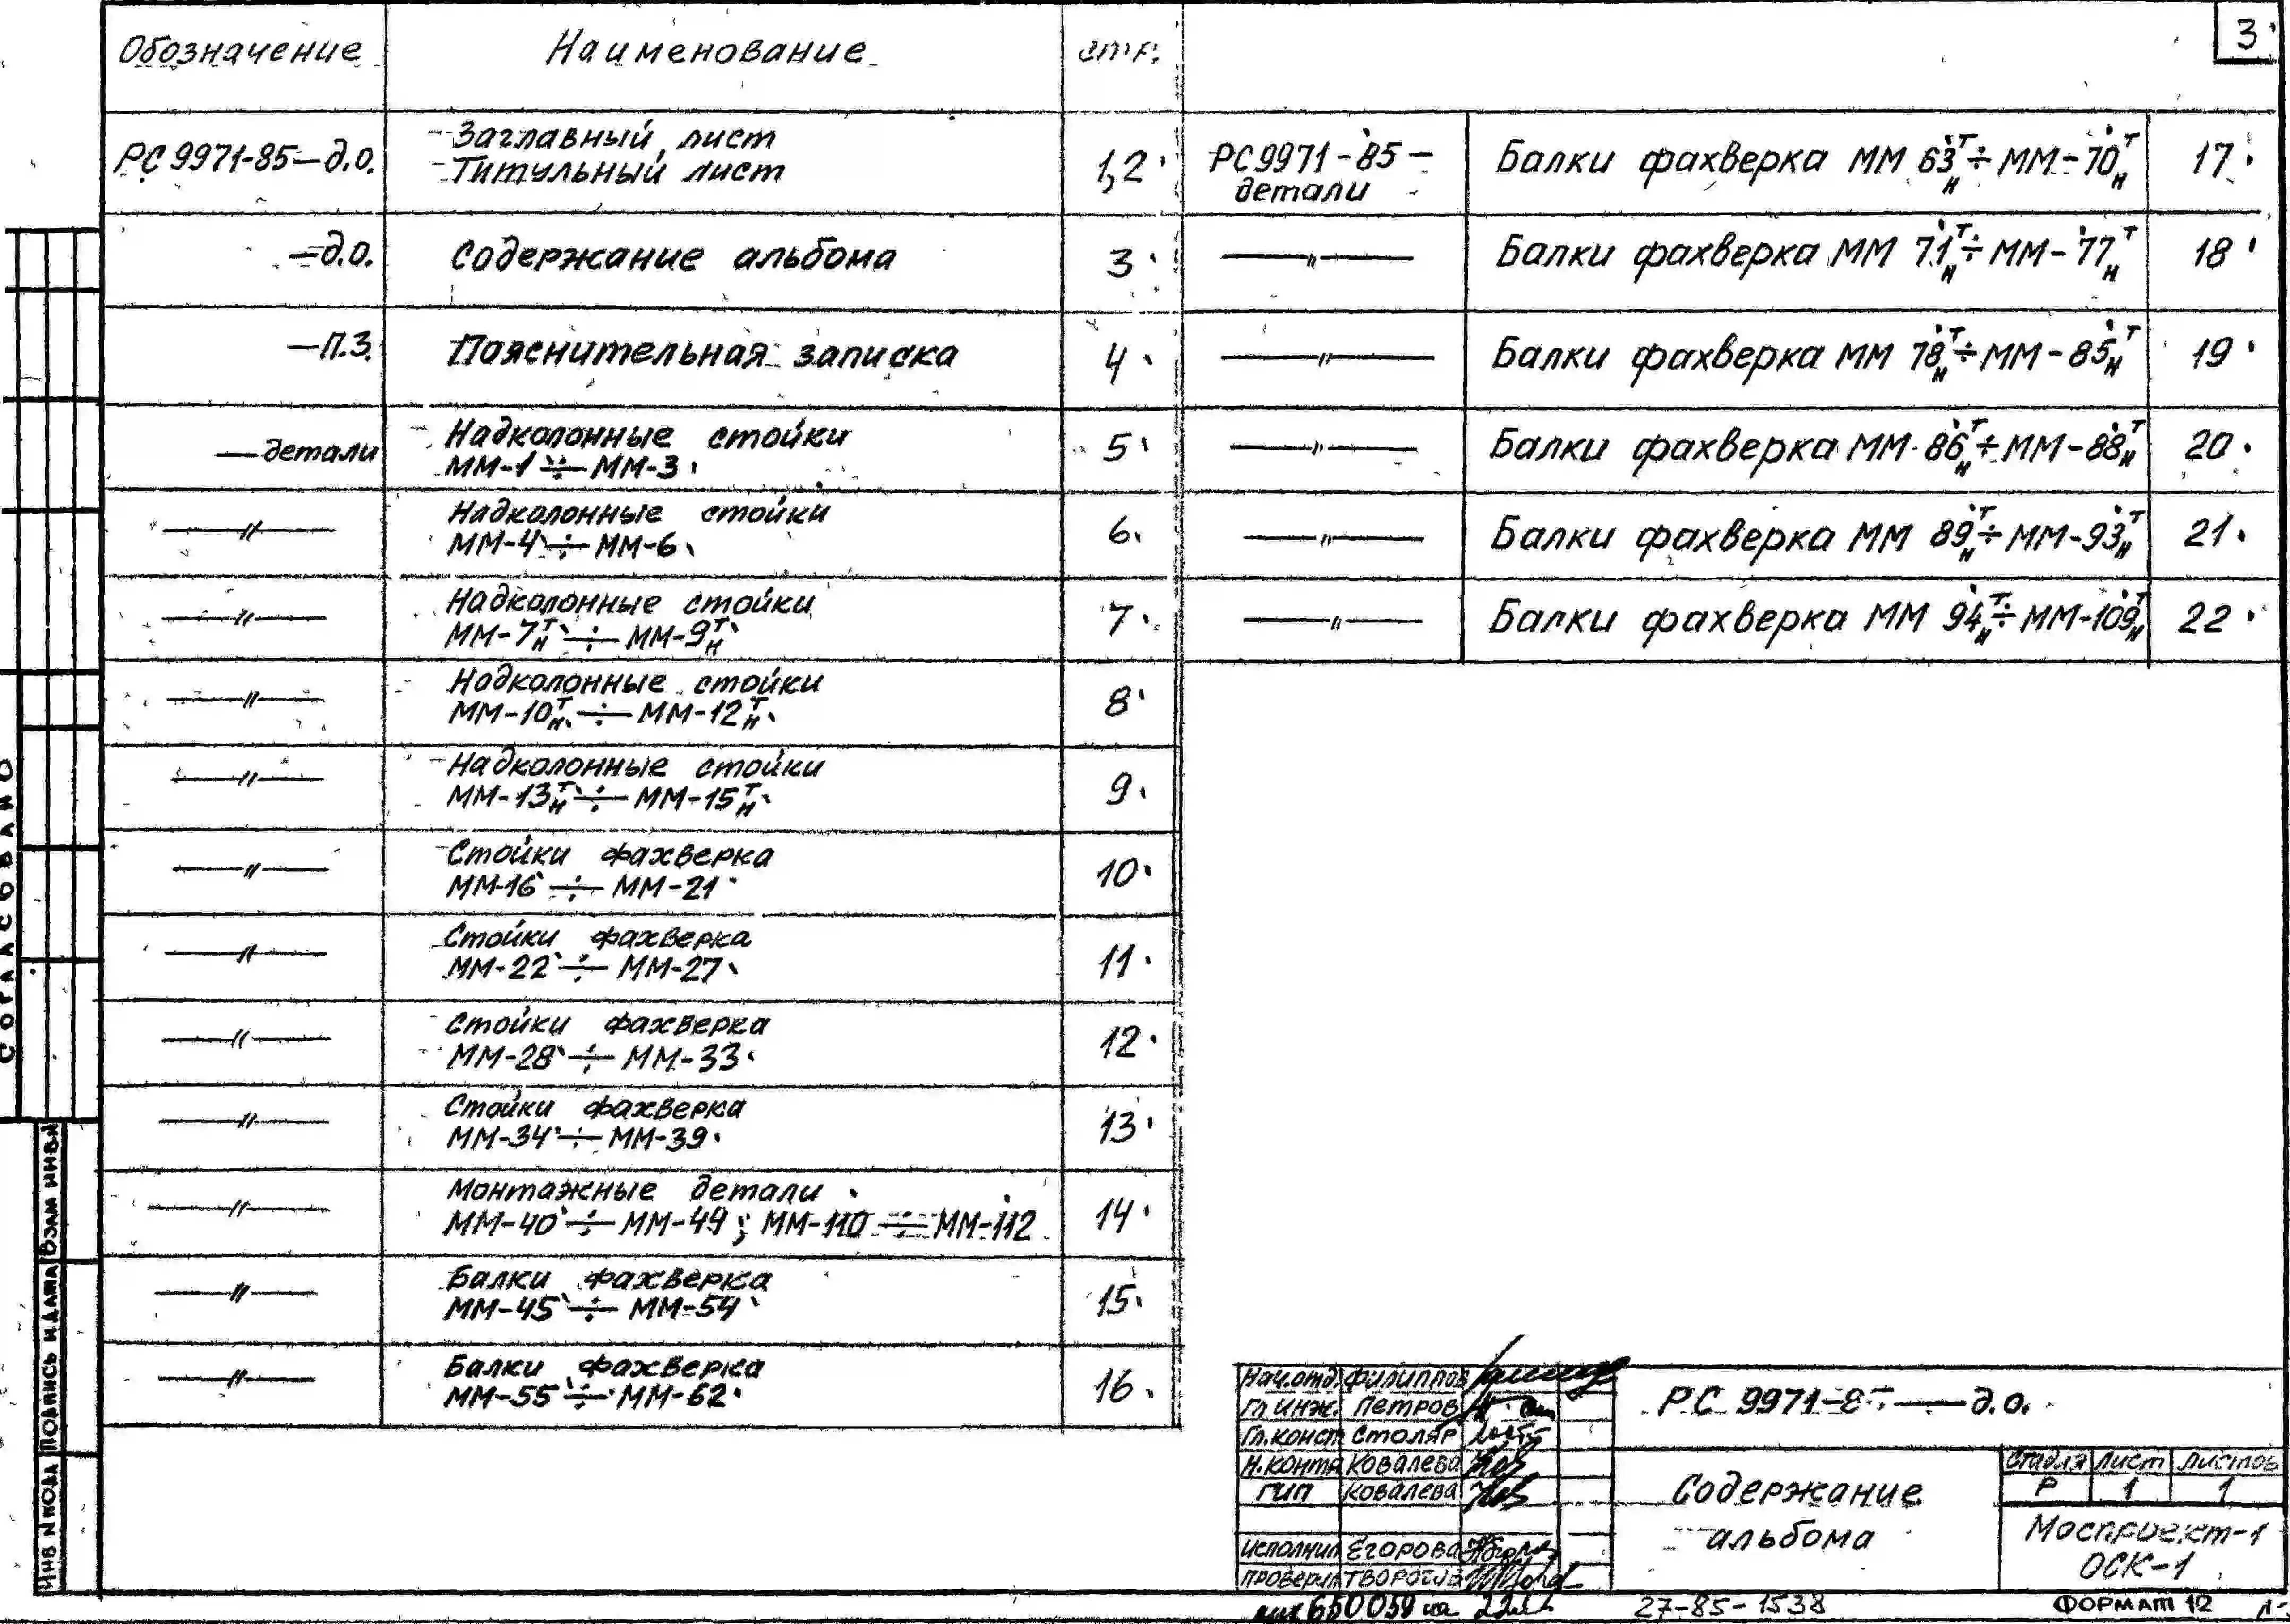 3
Обозначение Наименование стр.
РС 9971-85-д.о. Заглавный лист
Титульный лист 1,2
-д.о. Содержание альбома 3
-П.З. Пояснительная записка 4
-детали Надколонные стойки
ММ-1 ÷ ММ-3 5
—〃— Надколонные стойки
ММ-4 ÷ ММ-6 6
—〃— Надколонные стойки
ММ-7тн ÷ ММ-9тн 7
—〃— Надколонные стойки
ММ-10тн ÷ ММ-12тн 8
—〃— Надколонные стойки
ММ-13тн ÷ ММ-15тн 9
—〃— Стойки фахверка
ММ-16 ÷ ММ-21 10
—〃— Стойки фахверка
ММ-22 ÷ ММ-27 11
—〃— Стойки фахверка
ММ-28 ÷ ММ-33 12
—〃— Стойки фахверка
ММ-34 ÷ ММ-39 13
—〃— Монтажные детали
ММ-40 ÷ ММ-49; ММ-110 ÷ ММ-112 14
—〃— Балки фахверка
ММ-45 ÷ ММ-54 15
—〃— Балки фахверка
ММ-55 ÷ ММ-62 16
РС9971-85-
детали Балки фахверка ММ 63тн ÷ ММ-70тн 17
—〃— Балки фахверка ММ 71тн ÷ ММ-77тн 18
—〃— Балки фахверка ММ 78тн ÷ ММ-85тн 19
—〃— Балки фахверка ММ 86тн ÷ ММ-88тн 20
—〃— Балки фахверка ММ 89тн ÷ ММ-93тн 21
—〃— Балки фахверка ММ 94тн ÷ ММ-109тн 22
СОГЛАСОВАНО
ИНВ N ПОДЛ ПОДПИСЬ И ДАТА ВЗАМ ИНВ N
Нач.отд. Филиппов
Гл инж. Петров
Гл.конст Столяр
Н.контр Ковалева
ГИП Ковалева
Исполнил Егорова
Проверил
РС 9971-8 — д.о.
Содержание
альбома
Стадия Лист Листов
Р 1 1
Моспроект-1
ОСК-1
650059
27-85-1538
ФОРМАТ 12